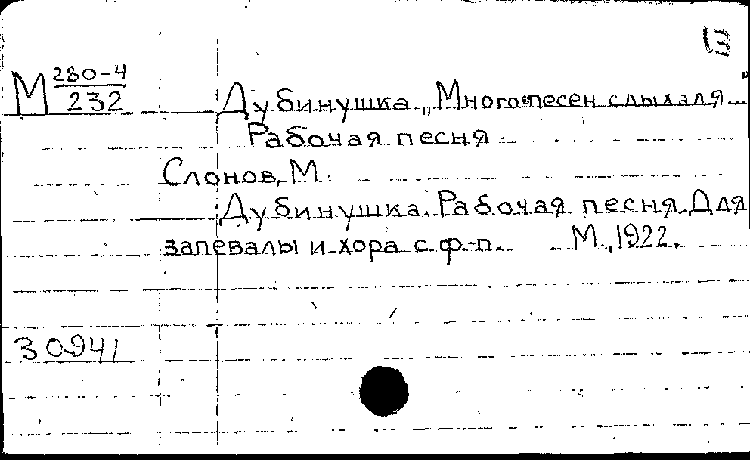 13
М 280-4
232
Дубинушка. „Много песен слыхал я..."
Рабочая песня
Слонов, М.
Дубинушка. Рабочая песня. Для
запевалы и хора с ф-п. М., 1922.
30941